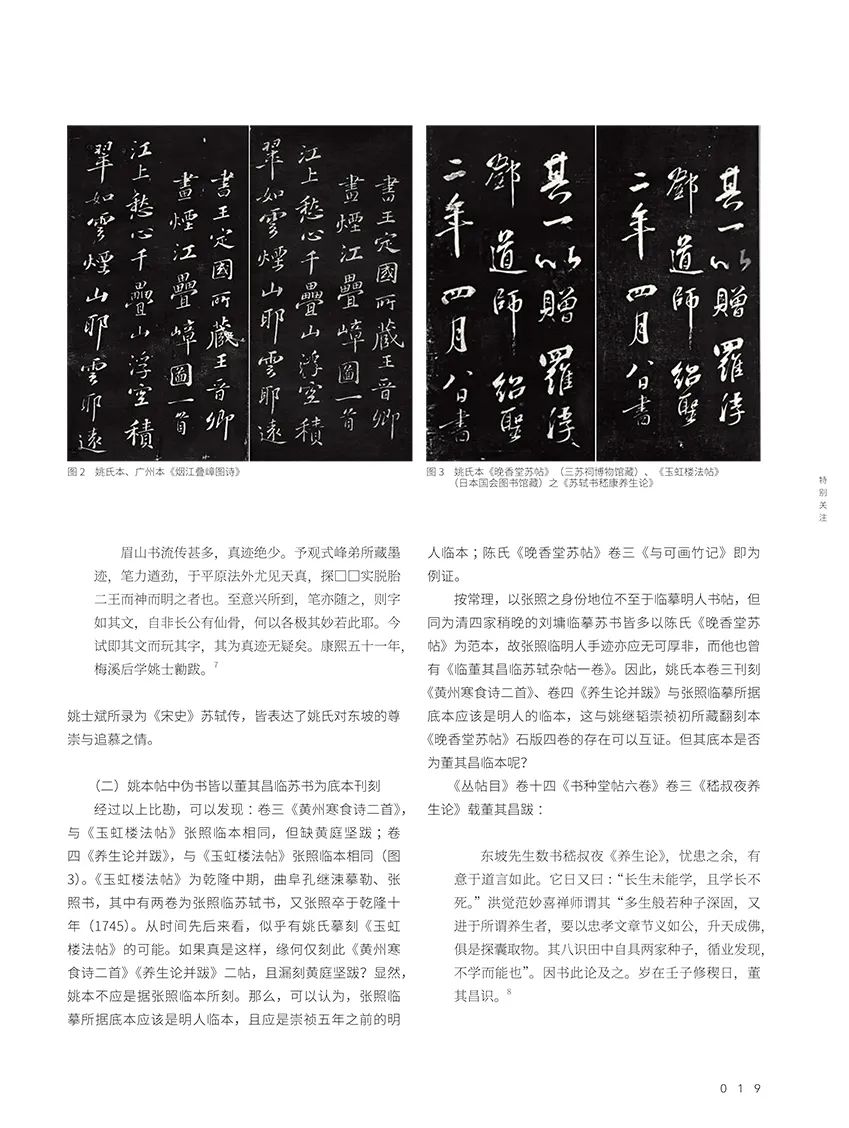 書王定國所藏王晉卿
畫煙江疊嶂圖一首
江上愁心千疊山浮空積
翠如雲煙山耶雲耶遠
書王定國所藏王晉卿
畫煙江疊嶂圖一首
江上愁心千疊山浮空積
翠如雲煙山耶雲耶遠
图 2 姚氏本、广州本《烟江叠嶂图诗》
其一以贈羅浮
鄧道師紹聖
二年四月八日書
其一以贈羅浮
鄧道師紹聖
二年四月八日書
图 3 姚氏本《晚香堂苏帖》（三苏祠博物馆藏）、《玉虹楼法帖》
（日本国会图书馆藏）之《苏轼书嵇康养生论》
特别关注
眉山书流传甚多，真迹绝少。予观式峰弟所藏墨
迹，笔力遒劲，于平原法外尤见天真，探□□实脱胎
二王而神而明之者也。至意兴所到，笔亦随之，则字
如其文，自非长公有仙骨，何以各极其妙若此耶。今
试即其文而玩其字，其为真迹无疑矣。康熙五十一年，
梅溪后学姚士勷跋。7
姚士斌所录为《宋史》苏轼传，皆表达了姚氏对东坡的尊
崇与追慕之情。
（二）姚本帖中伪书皆以董其昌临苏书为底本刊刻
经过以上比勘，可以发现：卷三《黄州寒食诗二首》，
与《玉虹楼法帖》张照临本相同，但缺黄庭坚跋；卷
四《养生论并跋》，与《玉虹楼法帖》张照临本相同（图
3）。《玉虹楼法帖》为乾隆中期，曲阜孔继涑摹勒、张
照书，其中有两卷为张照临苏轼书，又张照卒于乾隆十
年（1745）。从时间先后来看，似乎有姚氏摹刻《玉虹
楼法帖》的可能。如果真是这样，缘何仅刻此《黄州寒
食诗二首》《养生论并跋》二帖，且漏刻黄庭坚跋？显然，
姚本不应是据张照临本所刻。那么，可以认为，张照临
摹所据底本应该是明人临本，且应是崇祯五年之前的明
人临本；陈氏《晚香堂苏帖》卷三《与可画竹记》即为
例证。
按常理，以张照之身份地位不至于临摹明人书帖，但
同为清四家稍晚的刘墉临摹苏书皆多以陈氏《晚香堂苏
帖》为范本，故张照临明人手迹亦应无可厚非，而他也曾
有《临董其昌临苏轼杂帖一卷》。因此，姚氏本卷三刊刻
《黄州寒食诗二首》、卷四《养生论并跋》与张照临摹所据
底本应该是明人的临本，这与姚继韬崇祯初所藏翻刻本
《晚香堂苏帖》石版四卷的存在可以互证。但其底本是否
为董其昌临本呢？
《丛帖目》卷十四《书种堂帖六卷》卷三《嵇叔夜养
生论》载董其昌跋：
东坡先生数书嵇叔夜《养生论》，忧患之余，有
意于道言如此。它日又曰：“长生未能学，且学长不
死。”洪觉范妙喜禅师谓其“多生般若种子深固，又
进于所谓养生者，要以忠孝文章节义如公，升天成佛，
俱是探囊取物。其八识田中自具两家种子，循业发现，
不学而能也”。因书此论及之。岁在壬子修稧日，董
其昌识。8
019